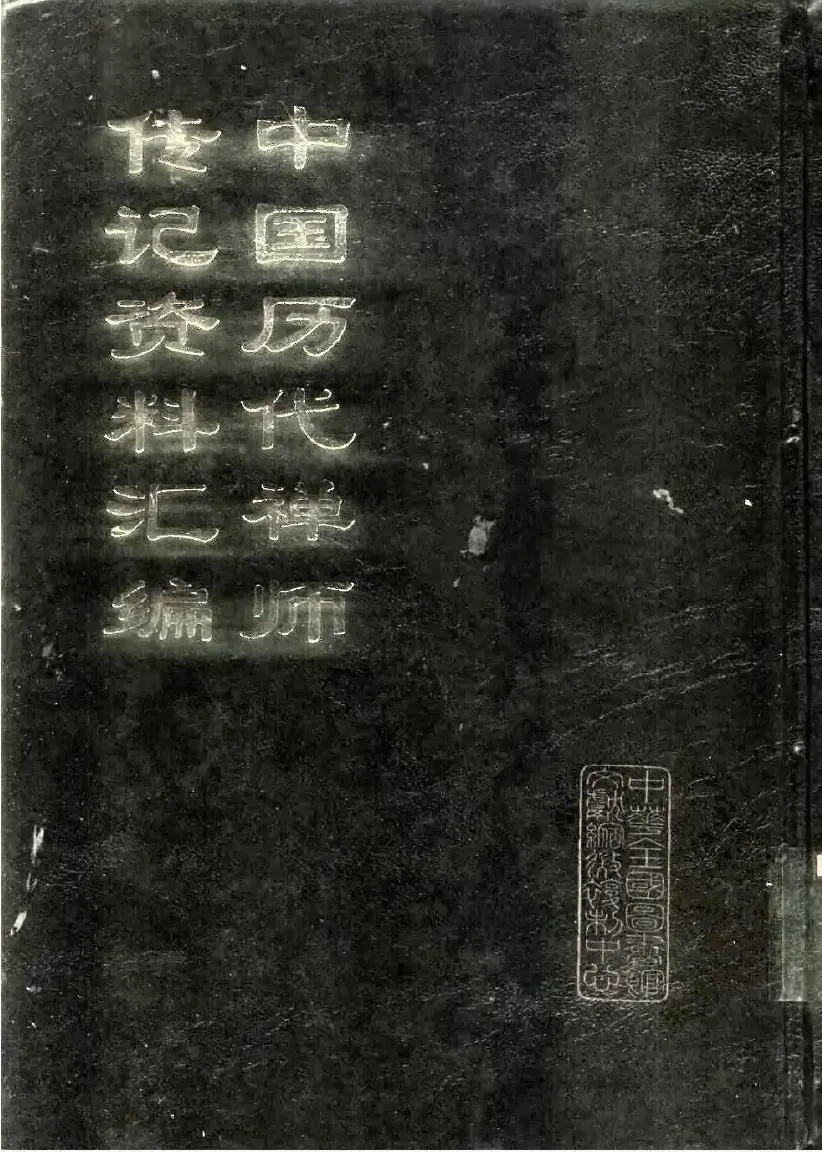 中国历代禅师
传记资料汇编
中華全國圖書館
文獻縮微復制中心